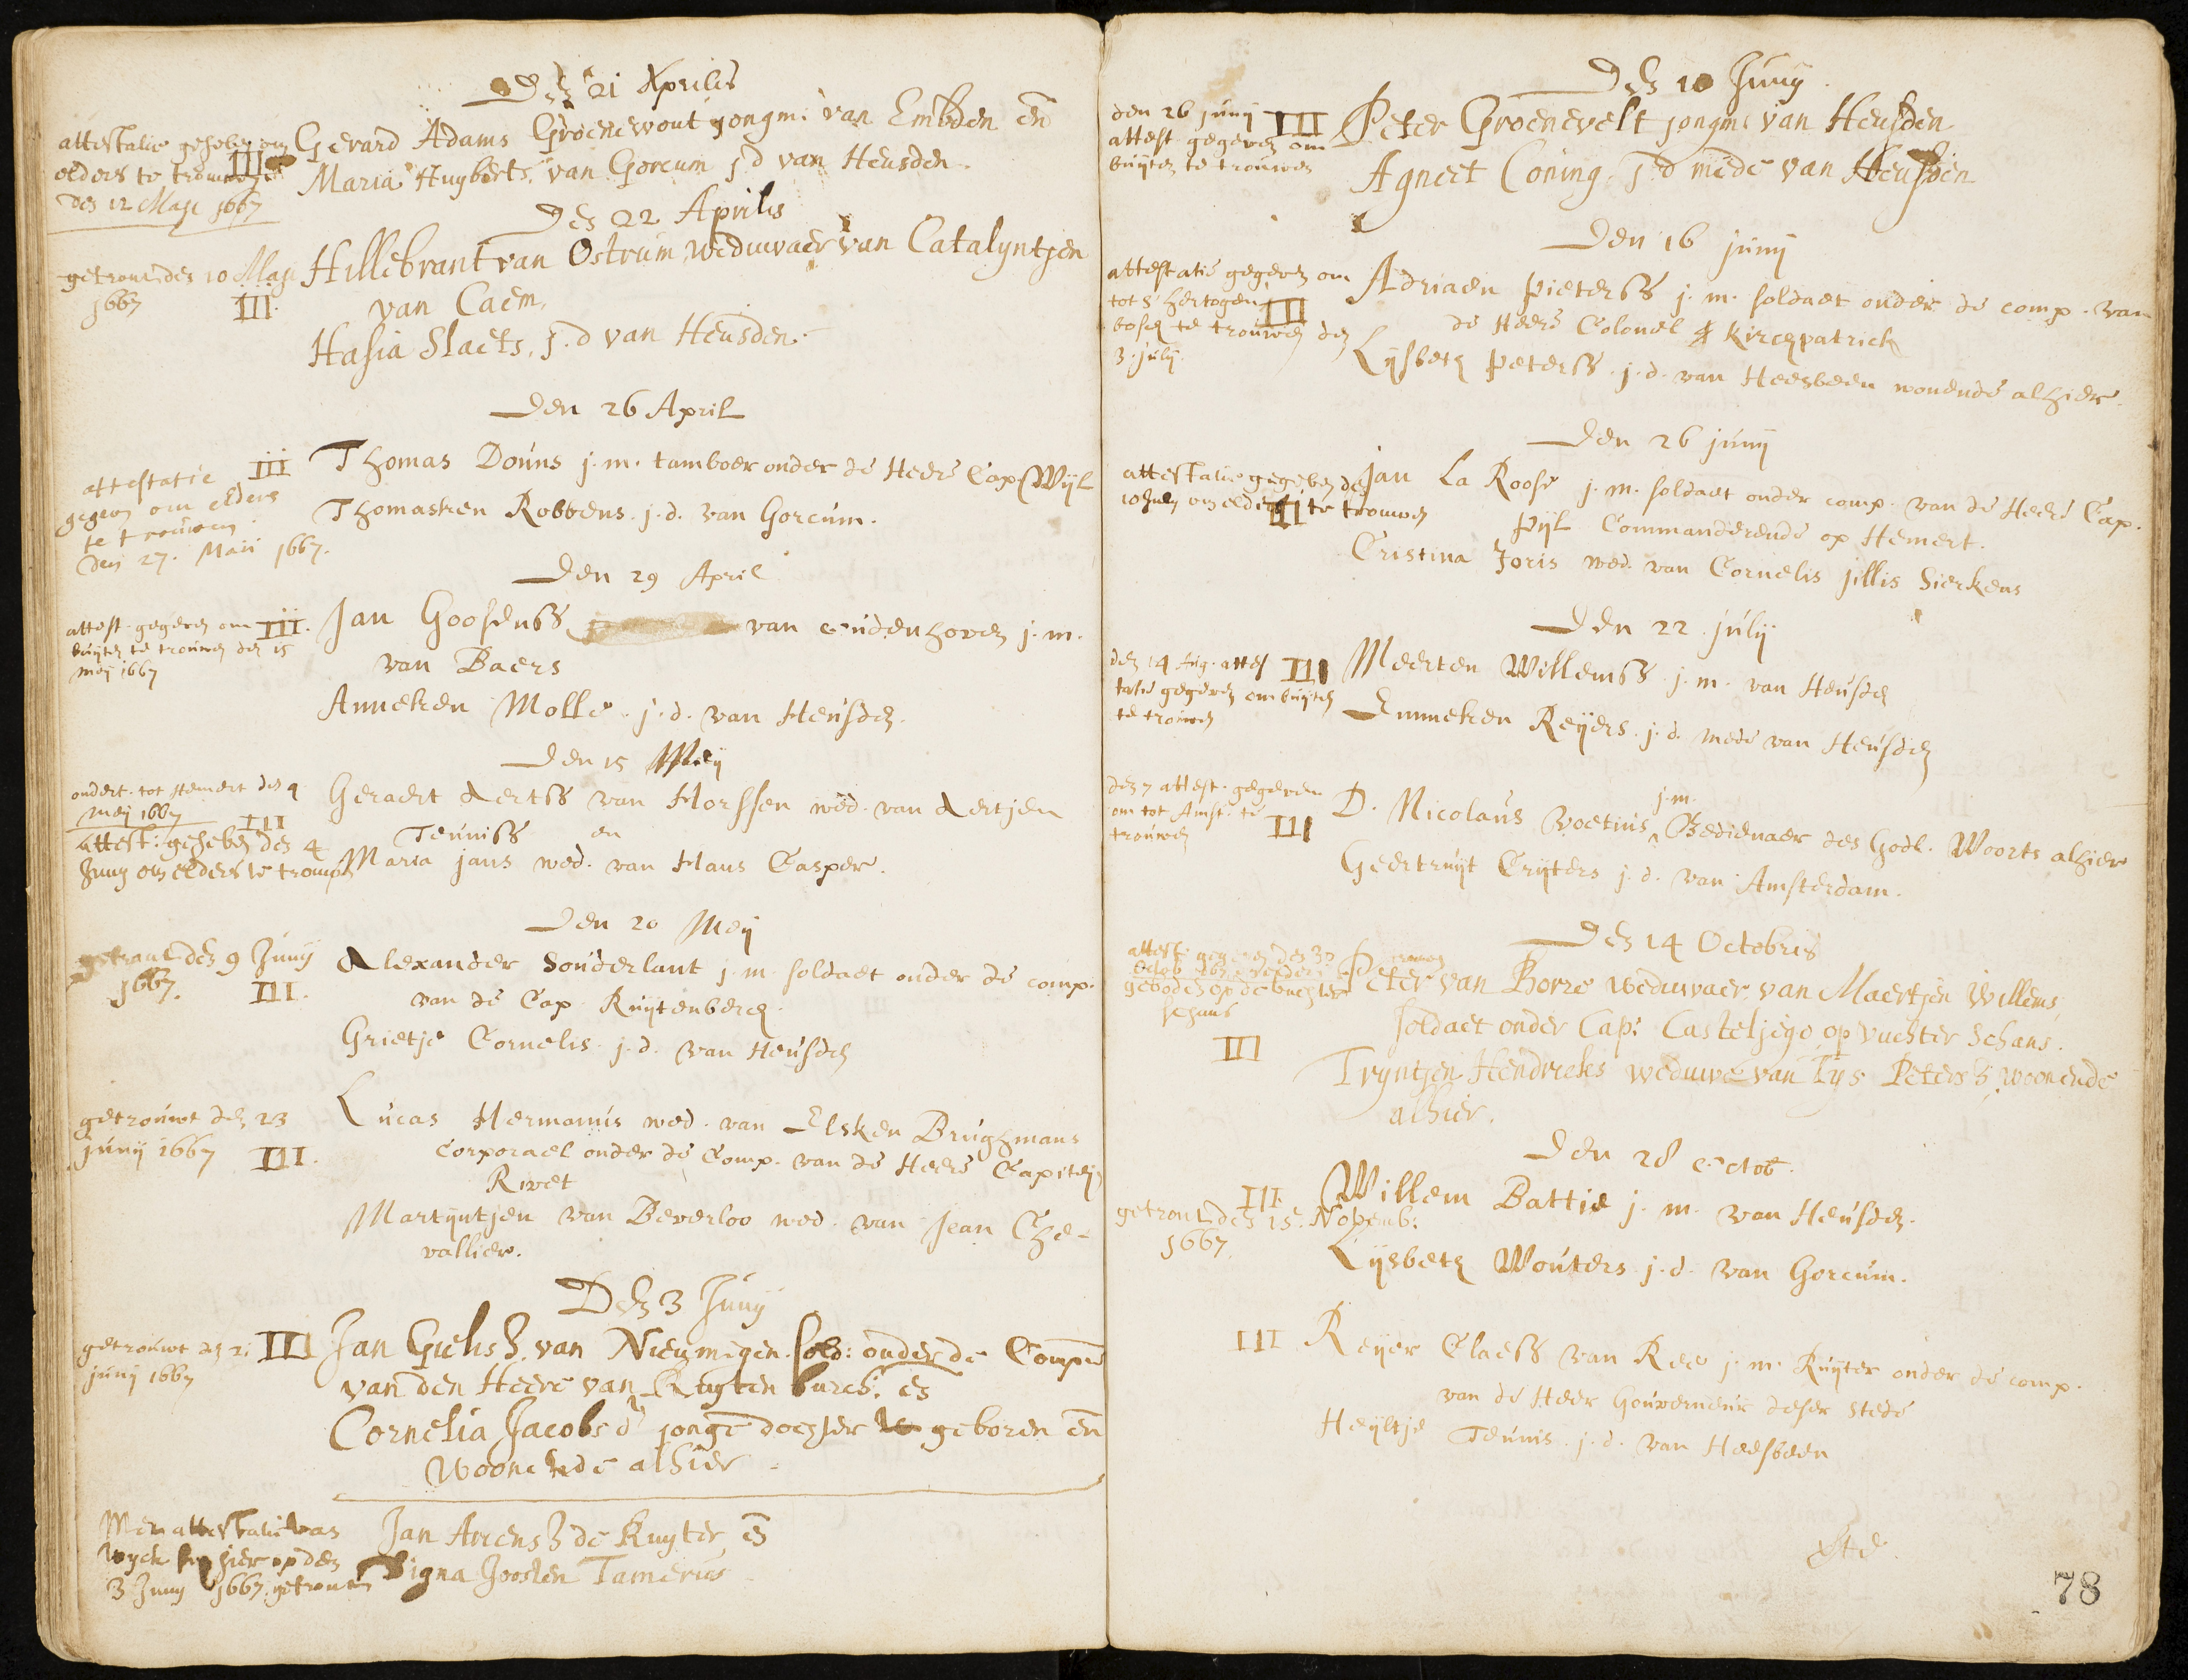 Den 21 Aprilis
attestatie gegeben om
elders te trouwen
den 12 Maji 1667
III
Gerard Adams Groenewout jongm: van Embden en
Maria Huyberts, van Gorcum j d van Heusden.
Den 22 Aprilis
getrout den 10 Maji
1667
III.
Hillebrant van Ostrum, weduwaer van Catalyntjen
van Caem,
Hasia Slaets, j.d van Heusden.
Den 26 April
attestatie
gegeven om elders
te trouwen
den 27. Maii 1667.
III
Thomas Douns j.m. tamboer onder de Heere Cap. Wijl
Thomasken Robbens. j.d. van Gorcum.
Den 29 April
attest. gegeven om
buyten te trouwen den 15
meij 1667
III.
Jan Goosenss van oudenhoven j.m.
van Baers
Anneken Molle. j.d. van Heusden.
Den 15 Meij
ondert. tot Hemert den 9
meij 1667
III
attest: gegeben den 4
Juny om elders te trouwen
Geraert Aertss van Horssen wed. van Aertjen
Teuniss en
Maria jans wed. van Hans Casper.
Den 20 Meij
getrout den 9 Junij
1667.
III.
Alexander Souderlant j.m. soldaet onder de comp.
van de Cap. Ruijtenberch.
Grietje Cornelis. j.d. van Heusden
getrouwt den 23
junij 1667
III.
Lucas Hermanus wed. van Elsken Brughmans
Corporael onder de Comp. van de Heere Capiteijn
Rivet
Martijntjen van Beverloo wed. van Jean Che-
vallier.
Den 3 Junij
getrouwt den 21
junij 1667
III
Jan Gielisz. van Nieumegen. sold: onder de Comp:
van den Heere van Ruyten burch. en
Cornelia Jacobs dr jonge dochter geboren en
woonende alhier.
Met attestatie van
Wyck hier op den
3 Juny 1667. getrouwt
Jan Ariensz de Ruyter, en
Digna Joosten Tamerus
Den 10 Junij.
den 26 junij
attest gegeven om
buyten te trouwen
III
Peter Groenevelt jongm: van Heusden
Agneet Coning, j d mede van Heusden
Den 16 junij
attestatie gegeven om
tot s' hertogen
bosch te trouwen den
3. julij.
III
Adriaen Pieterss j.m. soldaet onder de comp. van
de Heere Colonel Kirchpatrick
Lijsbeth Peterss. j.d. van Heesbeen wonende alhier.
Den 26 junij
attestatie gegeben den
10 July om elders te trouwen
III
Jan La Roose j.m. soldaet onder comp. van de Heere Cap.
Pijl Commanderende op Hemert.
Cristina Joris wed. van Cornelis jillis Sierkens
Den 22. julij
den 14 Aug. attes
tatie gegeven om buyten
te trouwen
III
Meerten Willemss. j.m. van Heusden
Enneken Reijers. j.d. mede van Heusden
den 7 attest. gegeven
om tot Amst. te
trouwen
III
j.m.
D. Nicolaus Voetius, Bedienaer des Godl. Woorts alhier
Geertruijt Crijters j.d. van Amsterdam.
Den 14 Octobris
attest: gegeven den 30
Octob. 1667
geboden op de vuchter
schans
III
Peter van Borre weduwaer van Maertjen Willems,
soldaet onder Cap: Casteljégo op vuchter Schans.
Tryntjen Hendricks weduwe van Tys Petersz, woonende
alhier.
Den 28 octob.
III.
getrout den 15. Novemb:
1667.
Willem Battie j.m. van Heusden.
Lijsbeth Wouters. j.d. van Gorcum.
III
Reijer Claess van Ree j.m. Ruijter onder de comp.
van de Heer Gouverneur deser stede
Heijltje Teunis. j.d. van Heesbeen
78